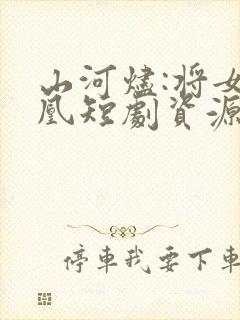 山河燼:將女
凰短劇資源
停車我要下車